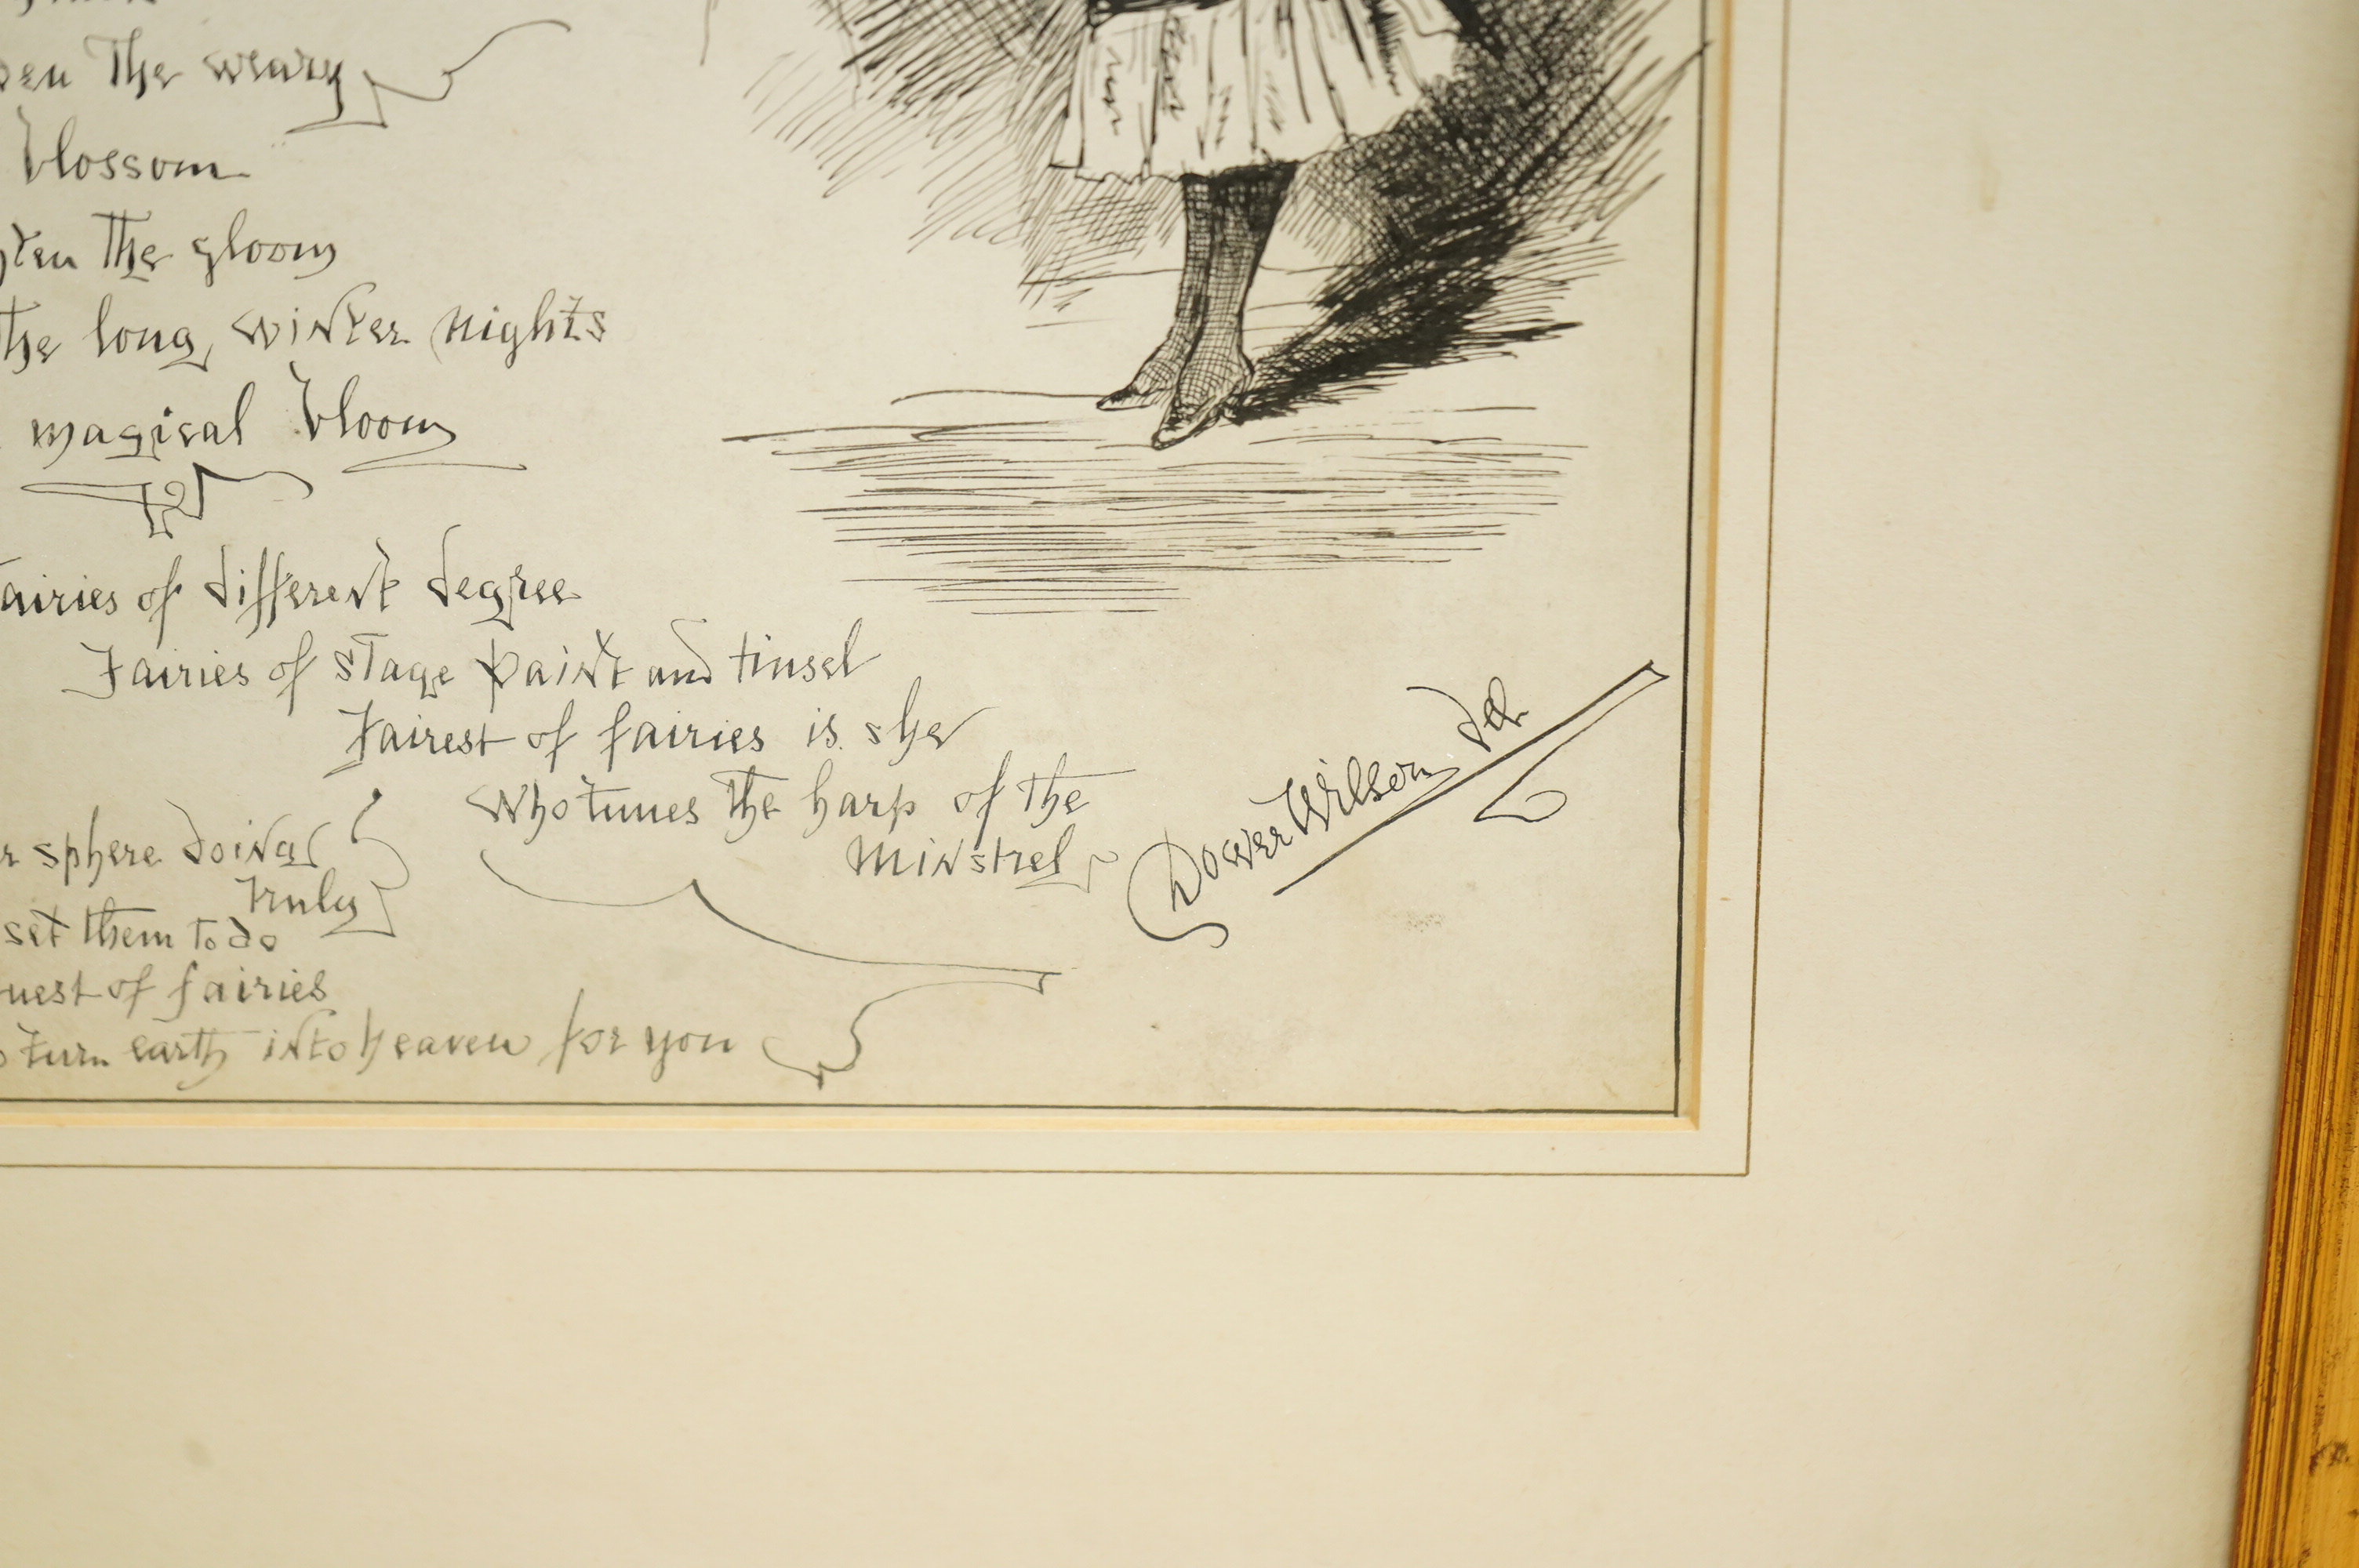 the weary
blossom
the gloom
the long winter nights
magical bloom
airies of different degree
Fairies of stage paint and tinsel
Fairest of fairies is she
Who tunes the harp of the
Minstrel
sphere doing
truly
set them to do
of fairies
turn earth into heaven for you
Dower Wilson del